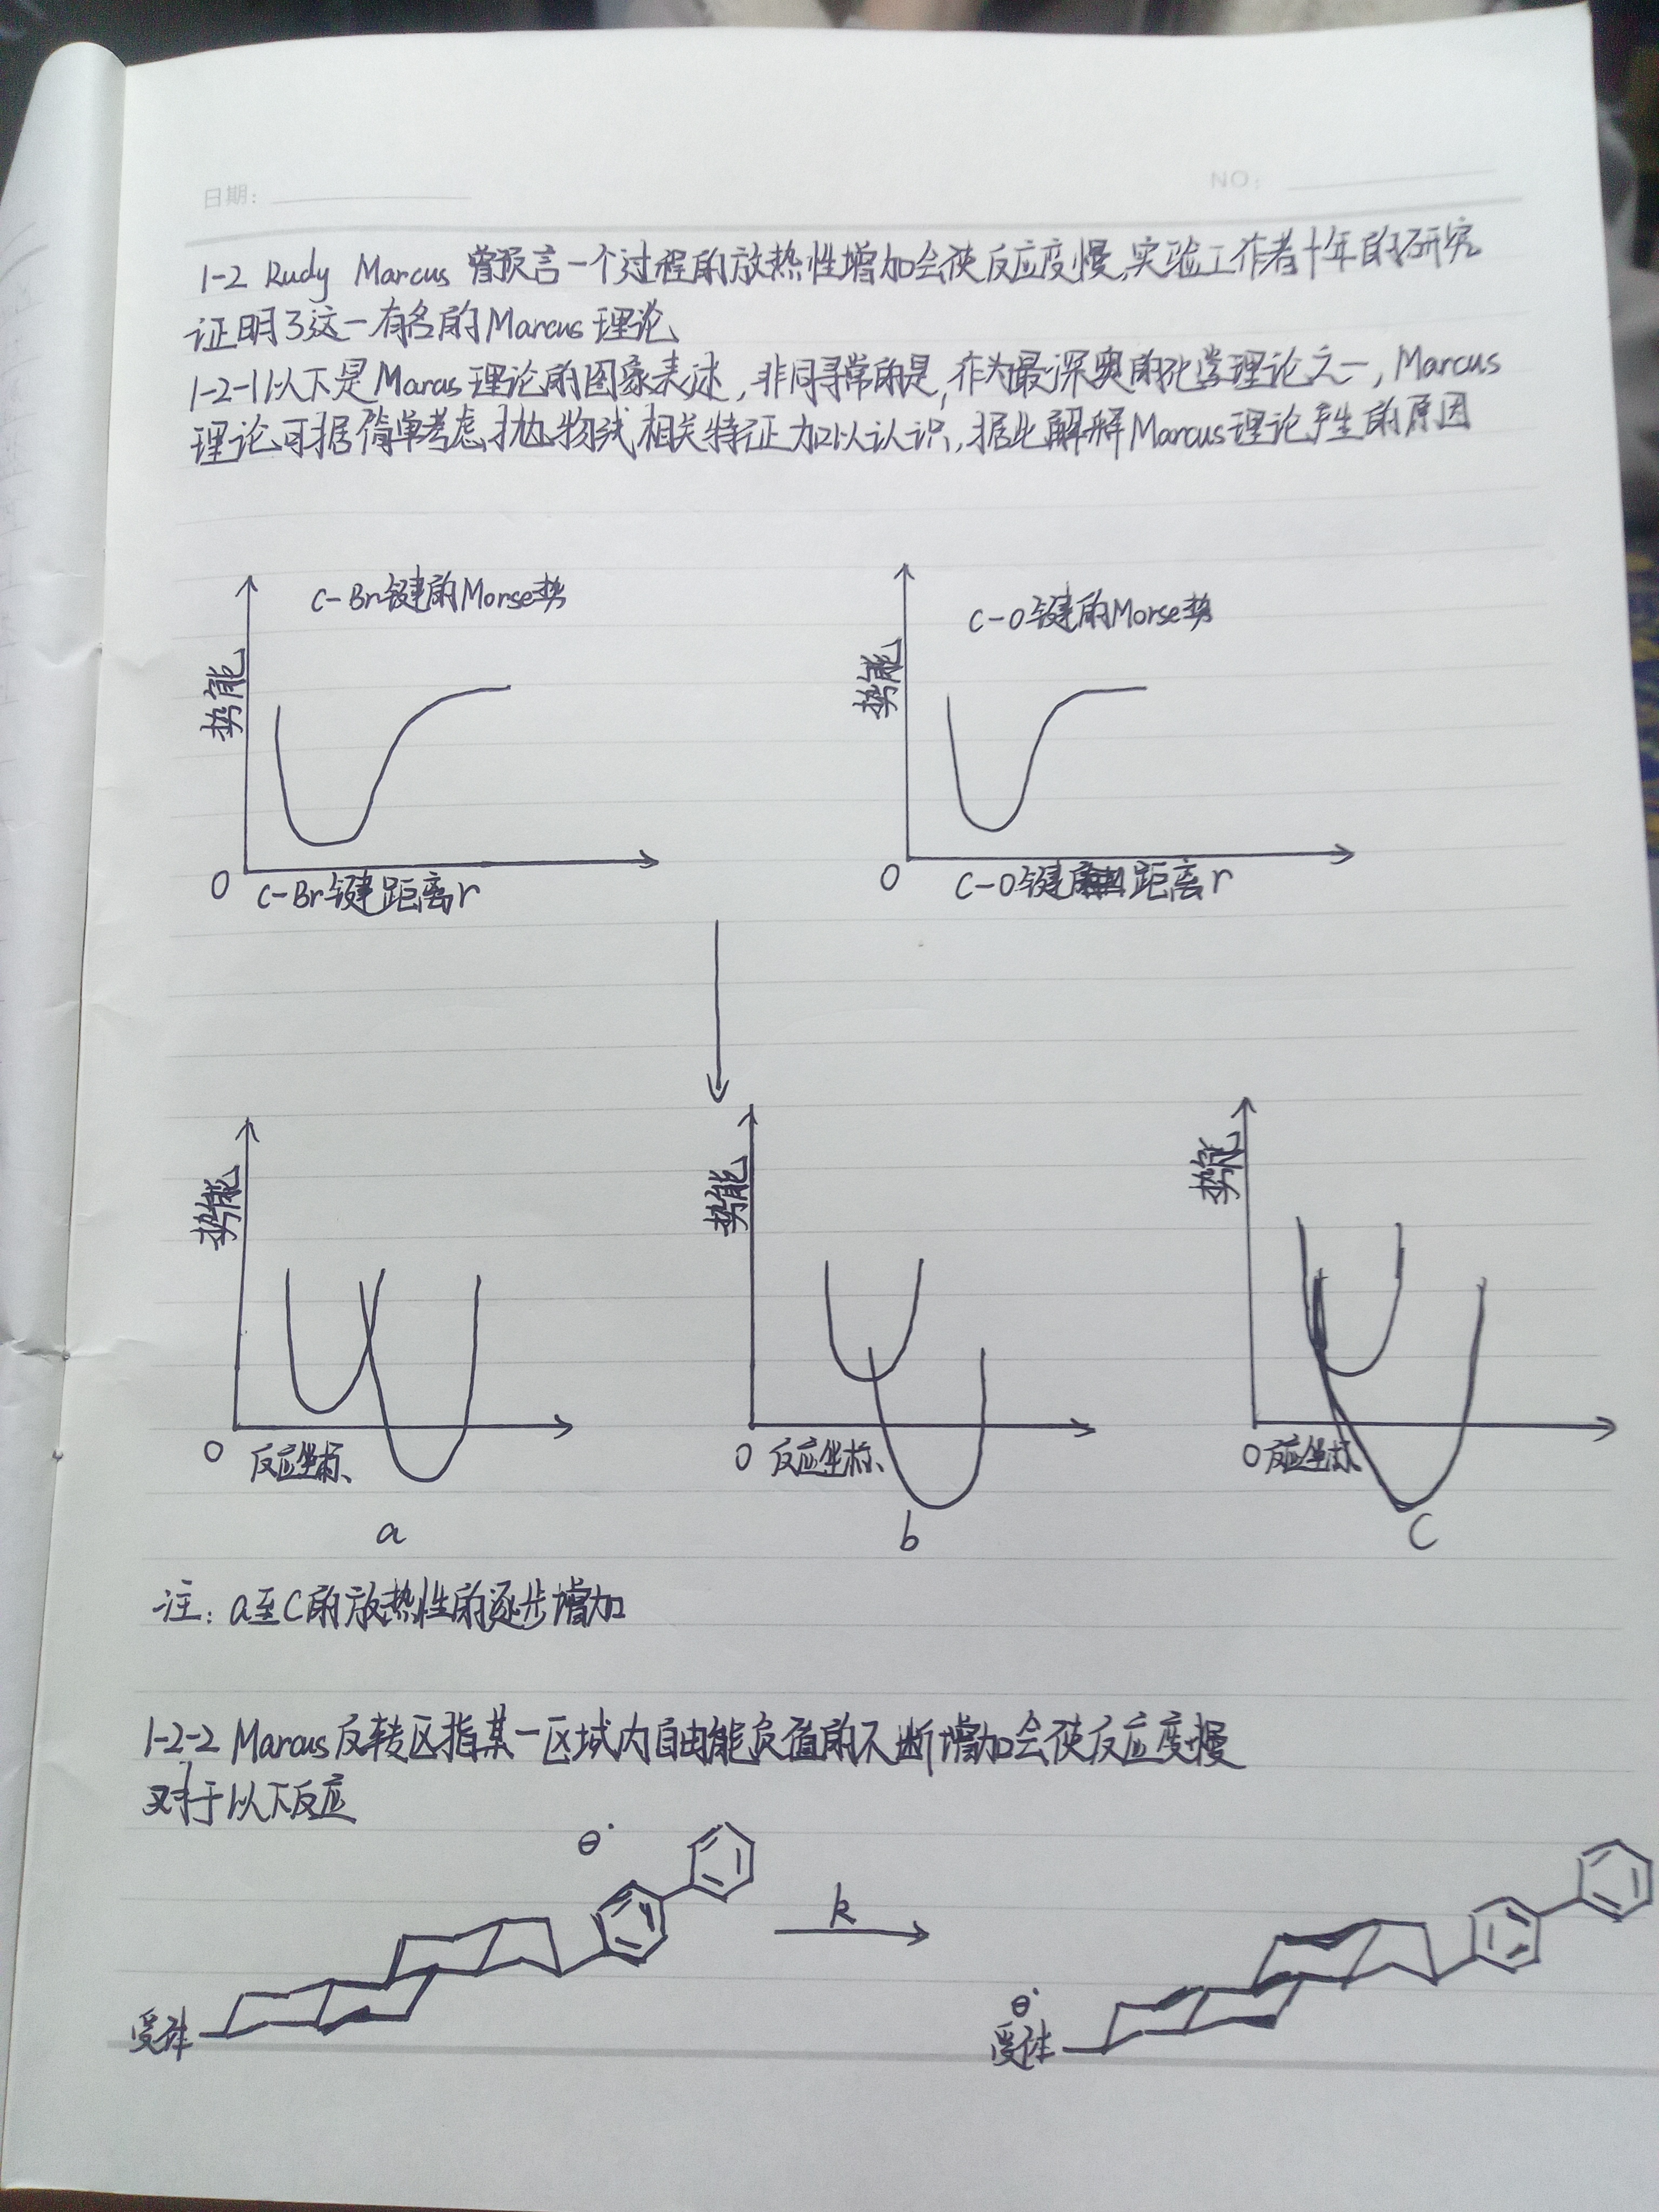 日期:
NO:
1-2 Rudy Marcus 曾预言一个过程的放热性增加会使反应变慢,实验工作者十年的研究
证明了这一有名的Marcus理论
1-2-1 以下是Marcus理论的图象表述,非同寻常的是,作为最深奥的化学理论之一,Marcus
理论可据简单考虑抛物线相关特征加以认识,据此解释Marcus理论产生的原因
C-Br键的Morse势
势能
0
C-Br键距离r
C-O键的Morse势
势能
0
C-O键 距离r
势能
0
反应坐标
a
势能
0
反应坐标
b
势能
0
反应坐标
C
注: a至C的放热性的逐步增加
1-2-2 Marcus反转区指某一区域内自由能负值的不断增加会使反应变慢
对于以下反应
⊖·
受体
k
⊖·
受体